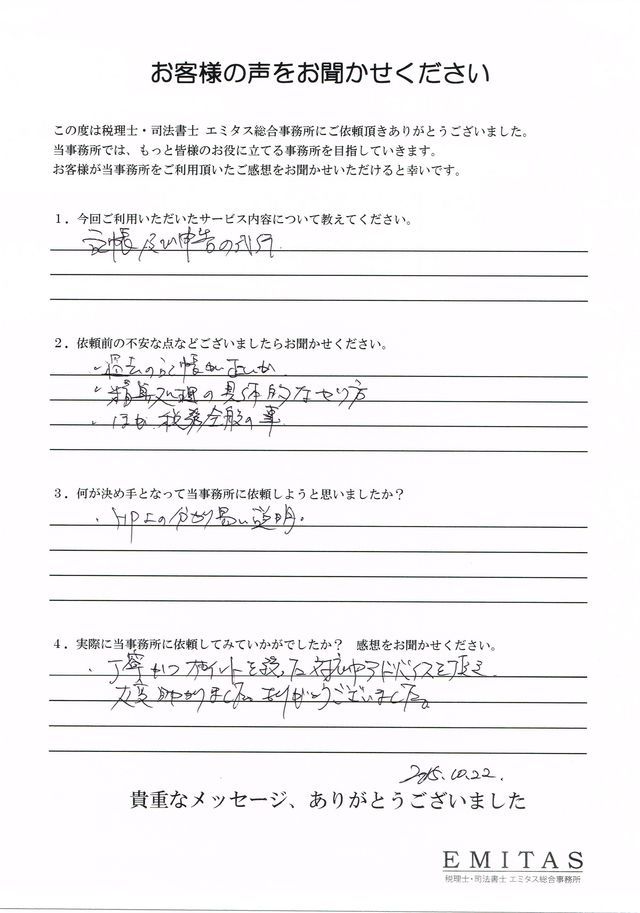 お客様の声をお聞かせください
この度は税理士・司法書士 エミタス総合事務所にご依頼頂きありがとうございました。
当事務所では、もっと皆様のお役に立てる事務所を目指していきます。
お客様が当事務所をご利用頂いたご感想をお聞かせいただけると幸いです。
１．今回ご利用いただいたサービス内容について教えてください。
記帳及び申告の代行
２．依頼前の不安な点などございましたらお聞かせください。
・過去の記帳が
・精算処理の具体的なやり方
・ほか、税務全般の事
３．何が決め手となって当事務所に依頼しようと思いましたか？
・HP上の分かり易い説明。
４．実際に当事務所に依頼してみていかがでしたか？　感想をお聞かせください。
・丁寧かつポイントを絞った対応やアドバイスを頂き
大変助かりました。ありがとうございました。
2015.10.22.
貴重なメッセージ、ありがとうございました
EMITAS
税理士・司法書士 エミタス総合事務所